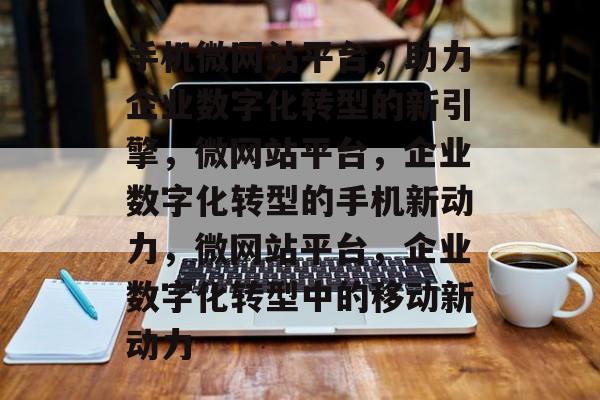 手机微网站平台，助力
企业数字化转型的新引
擎，微网站平台，企业
数字化转型的手机新动
力，微网站平台，企业
数字化转型中的移动新
动力